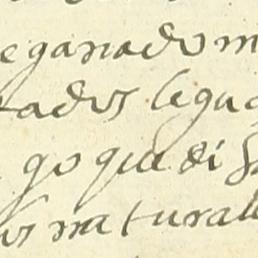 eganado m
tados legua
go que di
os natural